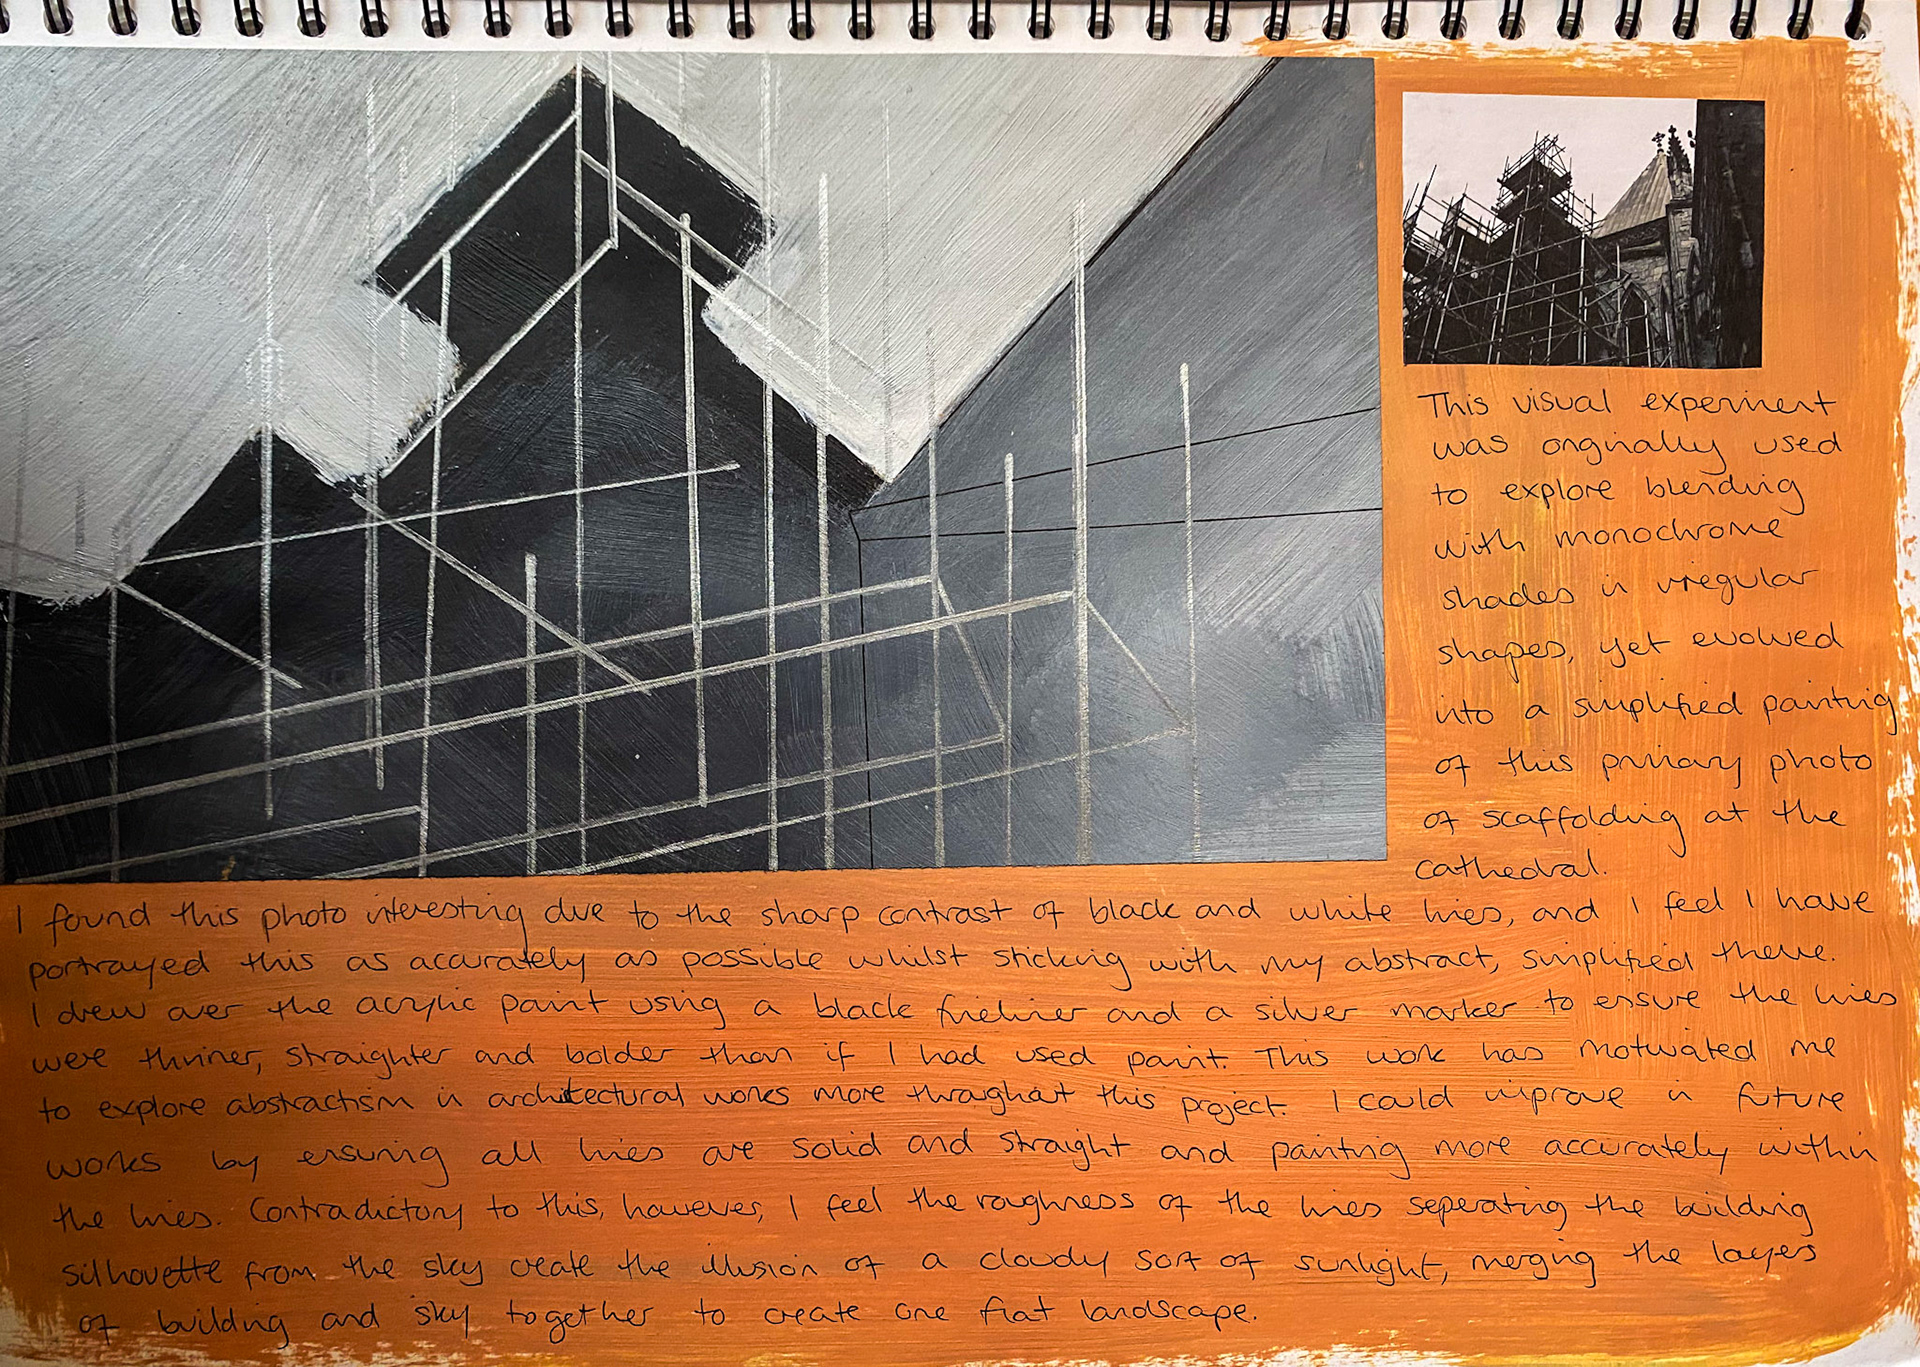 This visual experiment
was orginally used
to explore blending
with monochrome
shades in irregular
shapes, yet evolved
into a simplified painting
of this primary photo
of scaffolding at the
cathedral.
I found this photo interesting due to the sharp contrast of black and white lines, and I feel I have
portrayed this as accurately as possible whilst sticking with my abstract, simplified theme.
I drew over the acrylic paint using a black fineliner and a silver marker to ensure the lines
were thinner, straighter and bolder than if I had used paint. This work has motivated me
to explore abstractism in architectural works more throughout this project. I could improve in future
works by ensuring all lines are solid and straight and painting more accurately within
the lines. Contradictory to this, however, I feel the roughness of the lines seperating the building
silhouette from the sky create the illusion of a cloudy sort of sunlight, merging the layers
of building and sky together to create one flat landscape.